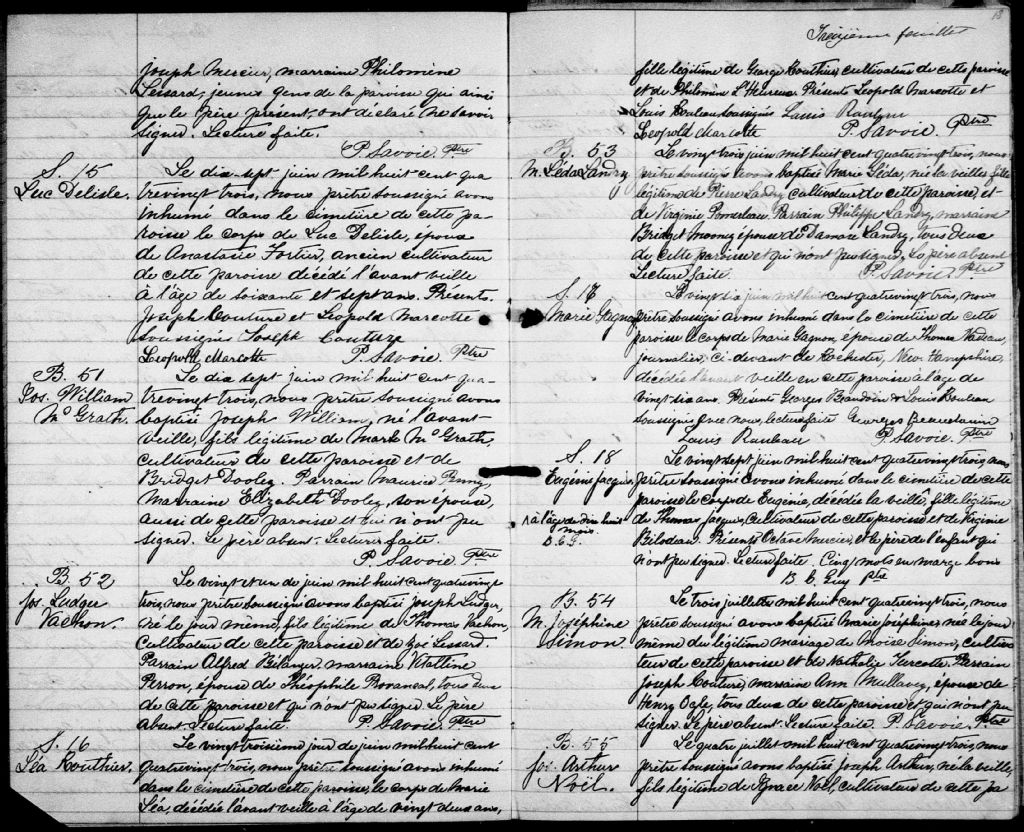 Joseph Mercier, marraine Philomène
Lessard, jeunes gens de la paroisse qui ainsi
que le père présent, ont déclaré ne savoir
signer. Lecture faite.
P. Savoie. Ptre
S. 15
Luc Delisle.
Le dix sept juin mil huit cent qua
trevingt trois, nous prêtre soussigné avons
inhumé dans le cimetière de cette pa-
roisse le corps de Luc Delisle, époux
de Anastasie Fortier, ancien cultivateur
de cette paroisse décédé l'avant veille
à l'âge de soixante et sept ans. Présents
Joseph Couture et Léopold Marcotte
soussignés Joseph Couture
Léopold Marcotte P. Savoie. Ptre
B. 51
Jos. William
Mc Grath.
Le dix sept juin mil huit cent qua-
trevingt trois, nous prêtre soussigné avons
baptisé Joseph William, né l'avant
veille, fils légitime de Mark Mc Grath,
cultivateur de cette paroisse et de
Bridget Dooley. Parrain Maurice
marraine Elizabeth Dooley, son épouse,
aussi de cette paroisse et qui n'ont pu
signer. Le père absent. Lecture faite.
P. Savoie Ptre
B. 52
Jos. Ludger
Vachon.
Le vingt et un de juin mil huit cent quatrevingt
trois, nous prêtre soussigné avons baptisé Joseph Ludger,
né le jour même, fils légitime de Thomas Vachon,
cultivateur de cette paroisse et de Zoé Lessard.
Parrain Alfred Bélanger, marraine
Perron, épouse de Théophile Provencal, tous deux
de cette paroisse et qui n'ont pu signer. Le père
absent. Lecture faite P. Savoie. Ptre
S. 16
Léa Routhier.
Le vingt troisième jour de juin mil huit cent
quatrevingt trois, nous prêtre soussigné avons inhumé
dans le cimetière de cette paroisse, le corps de Marie
Léa, décédée l'avant veille à l'âge de vingt deux ans,
13
Treizième feuillet
fille légitime de George Routhier, cultivateur de cette paroisse
et de Philomène L'Heureux. Présents Léopold Marcotte et
Louis Rouleau soussignés Louis
Léopold Marcotte P. Savoie. Ptre
B. 53
M. Léda Landry
Le vingt trois juin mil huit cent quatrevingt trois, nous
prêtre soussigné avons baptisé Marie Léda, née la veille fille
légitime de Pierre Landry cultivateur de cette paroisse, et
de Virginie Pomerleau. Parrain Philippe Landry, marraine
Bridget Mooney épouse de Damase Landry, tous deux
de cette paroisse et qui n'ont pu signer, le père absent
Lecture faite. P. Savoie. Ptre
S. 17
Marie Gagnon
Le vingt six juin mil huit cent quatrevingt trois, nous
prêtre soussigné avons inhumé dans le cimetière de cette
paroisse le corps de Marie Gagnon, épouse de Thomas Nadeau,
journalier, ci-devant de Rochester, New Hampshire,
décédée l'avant veille en cette paroisse à l'âge de
vingt six ans. Présents Georges Beaudoin & Louis Rouleau
soussignés avec nous, lecture faite Georges Beaudouin
Louis Rauleau P. Savoie. Ptre
S. 18
Eugénie Jacques
à l'âge de dix huit
mois.
B. C. G.
Le vingt sept juin mil huit cent quatrevingt trois, nous
prêtre soussigné avons inhumé dans le cimetière de cette
paroisse le corps de Eugénie, décédée la veille, fille légitime
de Thomas Jacques, cultivateur de cette paroisse et de Virginie
Bilodeau. Présents Octave Mercier, et le père de l'enfant qui
n'ont pu signer. Lecture faite. Cinq mots en marge bons
B C Guy Ptre
B. 54
M. Joséphine
Simon.
Le trois juillet mil huit cent quatrevingt trois, nous
prêtre soussigné avons baptisé Marie Joséphine, née le jour
même du légitime mariage de Moïse Simon, cultiva
teur de cette paroisse et de Nathalie Turcotte. Parrain
Joseph Couture, marraine Ann Mullavey, épouse de
Henry Ogle, tous deux de cette paroisse et qui n'ont pu
signer. Le père absent. Lecture faite. P. Savoie Ptre
B. 55
Jos. Arthur
Noël.
Le quatre juillet mil huit cent quatrevingt trois, nous
prêtre soussigné avons baptisé Joseph Arthur, né la veille,
fils légitime de Ignace Noël, cultivateur de cette pa